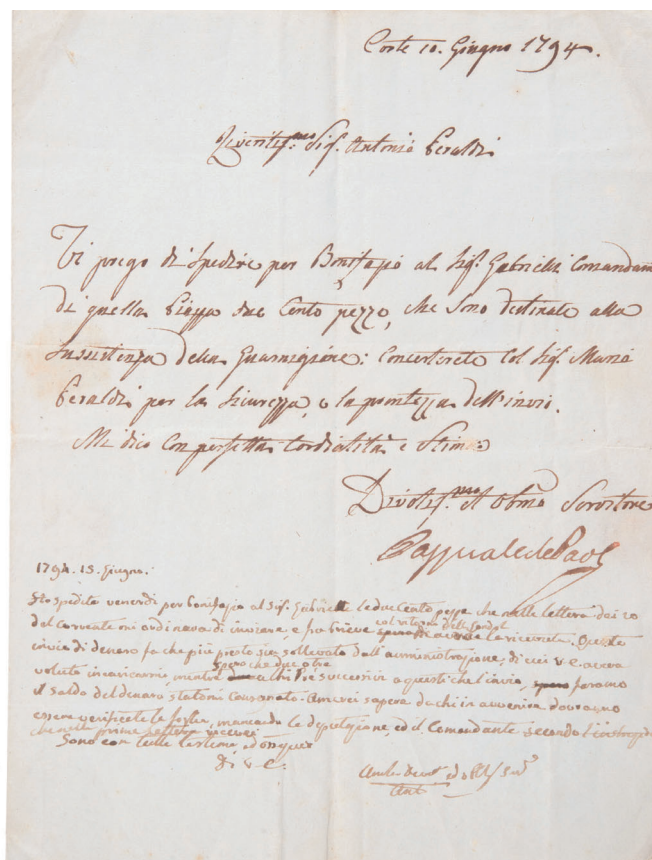 Corte 10. Giugno 1794.
Riveritiss.mo Sig.r Antonio Peraldi
Vi prego di spedire per Bonifazio al Sig.r Gabrielli Comandan
di quella Piazza due Cento pezze, che sono destinate alla
sussistenza della Guarnigione: Concerterete col Sig.r Mario
Peraldi per la sicurezza, e la prontezza dell'invio.
Mi dico con perfetta Cordialità e Stima
Divotiss.mo ed Obb.mo Servitore
Pasquale de Paoli
1794. 15. Giugno.
Ho spedito venerdì per Bonifazio al Sig.r Gabrielli le due Cento pezze che nella lettera dei 10
del corrente mi ordinava di inviare, e fra breve col ritorno la ricevuta. Questo
invio di denaro fa che più presto sia sollevato dall'amministrazione, di cui V.E. aveva
spero che due o tre
voluto incaricarmi, mentre successivi a questi che l'invio, faranno
il saldo del denaro statomi consegnato. Amerei sapere da chi in avvenire dovranno
essere verificate le mancando la deputazione, ed il Comandante secondo
che nella prima lettera
Sono con tutta l'estime, ed ossequio
di V.E.